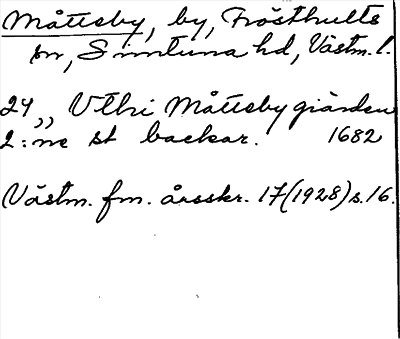 Måttsby, by, Frösthults
sn, Simtuna hd, Västm. l.
24 „ Vthi Måttsby giärden
2:ne st backar. 1682
Västm. fm. årsskr. 17 (1928) s. 16.